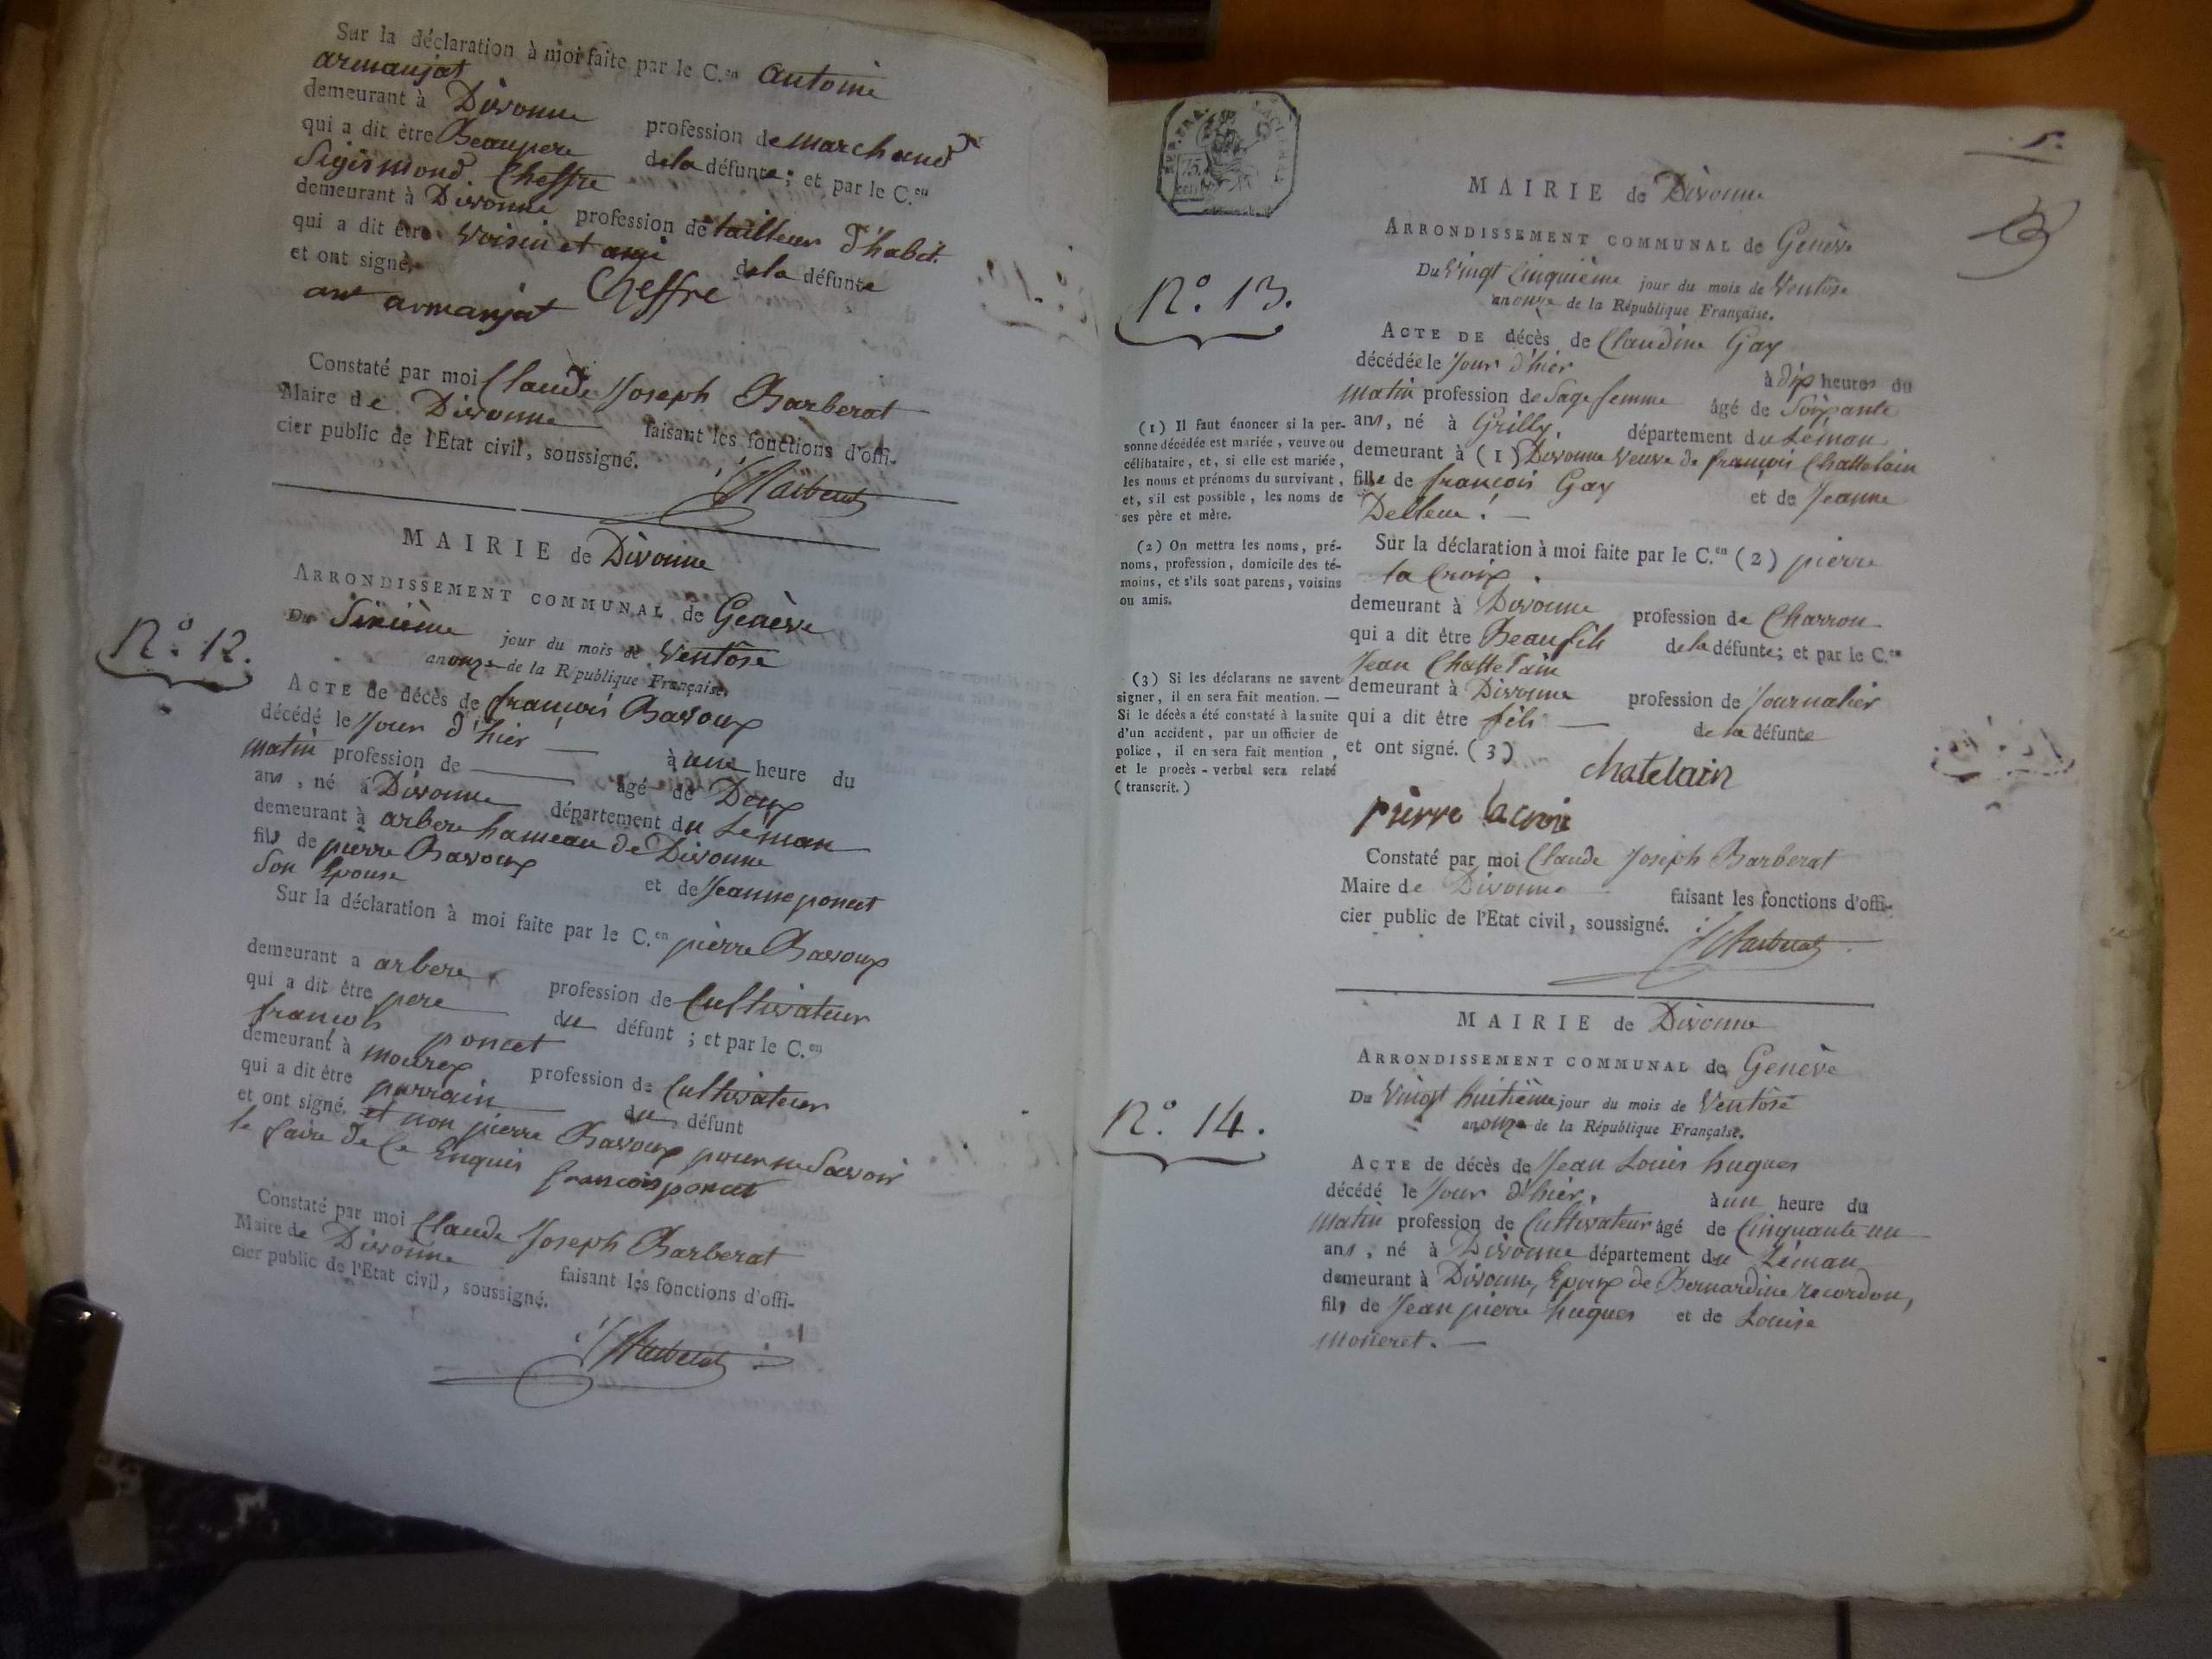 Sur la déclaration à moi faite par le C.en antoine
armanjat
demeurant à Divonne profession de marchand
qui a dit être Beaupere de la défunte; et par le C.en
Sigismond Cheffre
demeurant à Divonne profession de tailleur d'habit
qui a dit être voisin et ami de la défunte
et ont signé.
ant armanjat Cheffre
Constaté par moi Claude Joseph Barberat
Maire de Divonne faisant les fonctions d'offi-
cier public de l'Etat civil, soussigné.
Barberat
MAIRIE de Divonne
ARRONDISSEMENT COMMUNAL de Genève
N.° 12.
Du Sixième jour du mois de Ventôse
an onze de la République Française.
ACTE de décès de françois Bavoux
décédé le Jour d'hier à une heure du
matin profession de âgé de Deux
ans, né à Divonne département du Léman
demeurant à arbere hameau de Divonne
fils de pierre Bavoux et de Jeanne poncet
Son Epouse
Sur la déclaration à moi faite par le C.en pierre Bavoux
demeurant a arbere profession de Cultivateur
qui a dit être pere du défunt; et par le C.en
francois poncet
demeurant à mourex profession de Cultivateur
qui a dit être parrain du défunt
et ont signé. et non pierre Bavoux pour ne Savoir
le faire de Ce Enquis francois poncet
Constaté par moi Claude Joseph Barberat
Maire de Divonne faisant les fonctions d'offi-
cier public de l'Etat civil, soussigné.
Barberat
5.
RÉP. FRA.
75.
CEN
MAIRIE de Divonne
ARRONDISSEMENT COMMUNAL de Genève
N.° 13.
Du Vingt Cinquième jour du mois de Ventôse
an onze de la République Française.
ACTE DE décès de Claudine Gay
décédée le Jour d'hier à dix heures du
matin profession de Sage femme âgé de Soixante
ans, né à Grilly département du Léman
demeurant à (1) Divonne veuve de françois Chattelain
fille de françois Gay et de Jeanne
Delleur. —
(1) Il faut énoncer si la per-
sonne décédée est mariée, veuve ou
célibataire, et, si elle est mariée,
les noms et prénoms du survivant,
et, s'il est possible, les noms de
ses père et mère.
(2) On mettra les noms, pré-
noms, profession, domicile des té-
moins, et s'ils sont parens, voisins
ou amis.
(3) Si les déclarans ne savent
signer, il en sera fait mention. —
Si le décès a été constaté à la suite
d'un accident, par un officier de
police, il en sera fait mention,
et le procès-verbal sera relaté
(transcrit.)
Sur la déclaration à moi faite par le C.en (2) pierre
la Croix.
demeurant à Divonne profession de Charron
qui a dit être Beaufils de la défunte; et par le C.en
Jean Chattelain
demeurant à Divonne profession de Journalier
qui a dit être fils — de la défunte
et ont signé. (3)
chatelain
pierre lacroix
Constaté par moi Claude Joseph Barberat
Maire de Divonne faisant les fonctions d'offi-
cier public de l'Etat civil, soussigné.
Barberat
MAIRIE de Divonne
ARRONDISSEMENT COMMUNAL de Genève
N.° 14.
Du Vingt huitième jour du mois de Ventôse
an onze de la République Française.
ACTE de décès de Jean Louis hugues
décédé le Jour d'hier. à un heure du
matin profession de Cultivateur âgé de Cinquante un
ans, né à Divonne département du Léman
demeurant à Divonne, Epoux de Bernardine recordon,
fils de Jean pierre hugues et de Louise
moneret. —